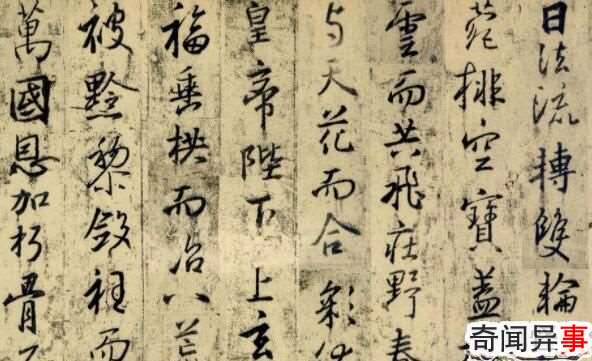 日法流轉雙輪
苑排空寶蓋
雲而共飛莊野春
与天花而合彩
皇帝陛下上玄
福垂拱而治八荒
被黔黎斂衽而
萬國恩加朽骨
奇闻异事